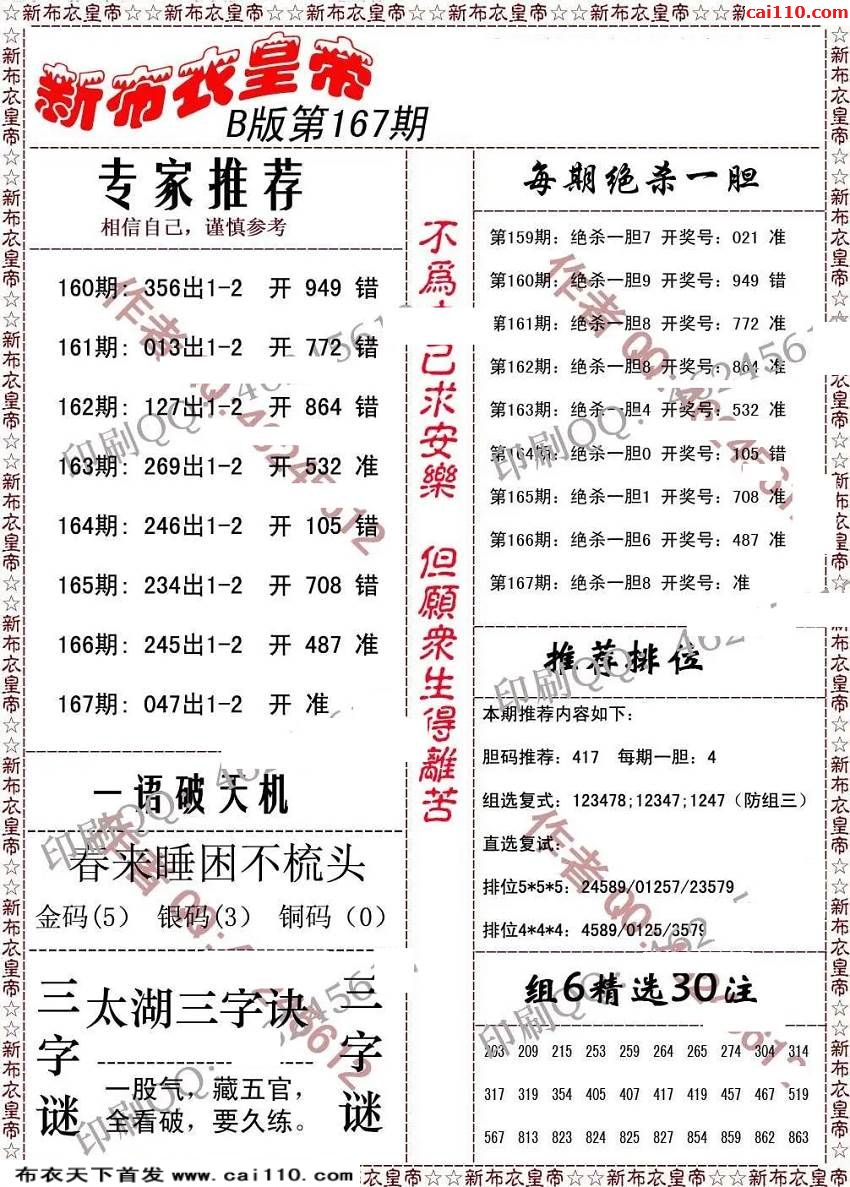 ☆☆新布衣皇帝☆☆新布衣皇帝☆☆新布衣皇帝☆☆新布衣皇帝☆☆新布衣皇帝☆☆新
cai110.com
新布衣皇帝
B版第167期
专家推荐
相信自己，谨慎参考
160期: 356出1-2 开 949 错
161期: 013出1-2 开 772 错
162期: 127出1-2 开 864 错
163期: 269出1-2 开 532 准
164期: 246出1-2 开 105 错
165期: 234出1-2 开 708 错
166期: 245出1-2 开 487 准
167期: 047出1-2 开 准
一语破天机
春来睡困不梳头
金码(5) 银码(3) 铜码（0）
三字谜
太湖三字诀
一股气，藏五官，
全看破，要久练。
三字谜
不為
己求安樂
但願衆生得離苦
每期绝杀一胆
第159期: 绝杀一胆7 开奖号: 021 准
第160期: 绝杀一胆9 开奖号: 949 错
第161期: 绝杀一胆8 开奖号: 772 准
第162期: 绝杀一胆8 开奖号: 864 准
第163期: 绝杀一胆4 开奖号: 532 准
第164期: 绝杀一胆0 开奖号: 105 错
第165期: 绝杀一胆1 开奖号: 708 准
第166期: 绝杀一胆6 开奖号: 487 准
第167期: 绝杀一胆8 开奖号: 准
推荐排位
本期推荐内容如下:
胆码推荐: 417 每期一胆: 4
组选复式: 123478;12347;1247（防组三）
直选复试:
排位5*5*5: 24589/01257/23579
排位4*4*4: 4589/0125/3579
组6精选30注
203 209 215 253 259 264 265 274 304 314
317 319 354 405 407 417 419 457 467 519
567 813 823 824 825 827 854 859 862 863
布衣天下首发 www.cai110.com
衣皇帝☆☆新布衣皇帝☆☆新布衣皇帝☆☆新布衣皇帝☆☆